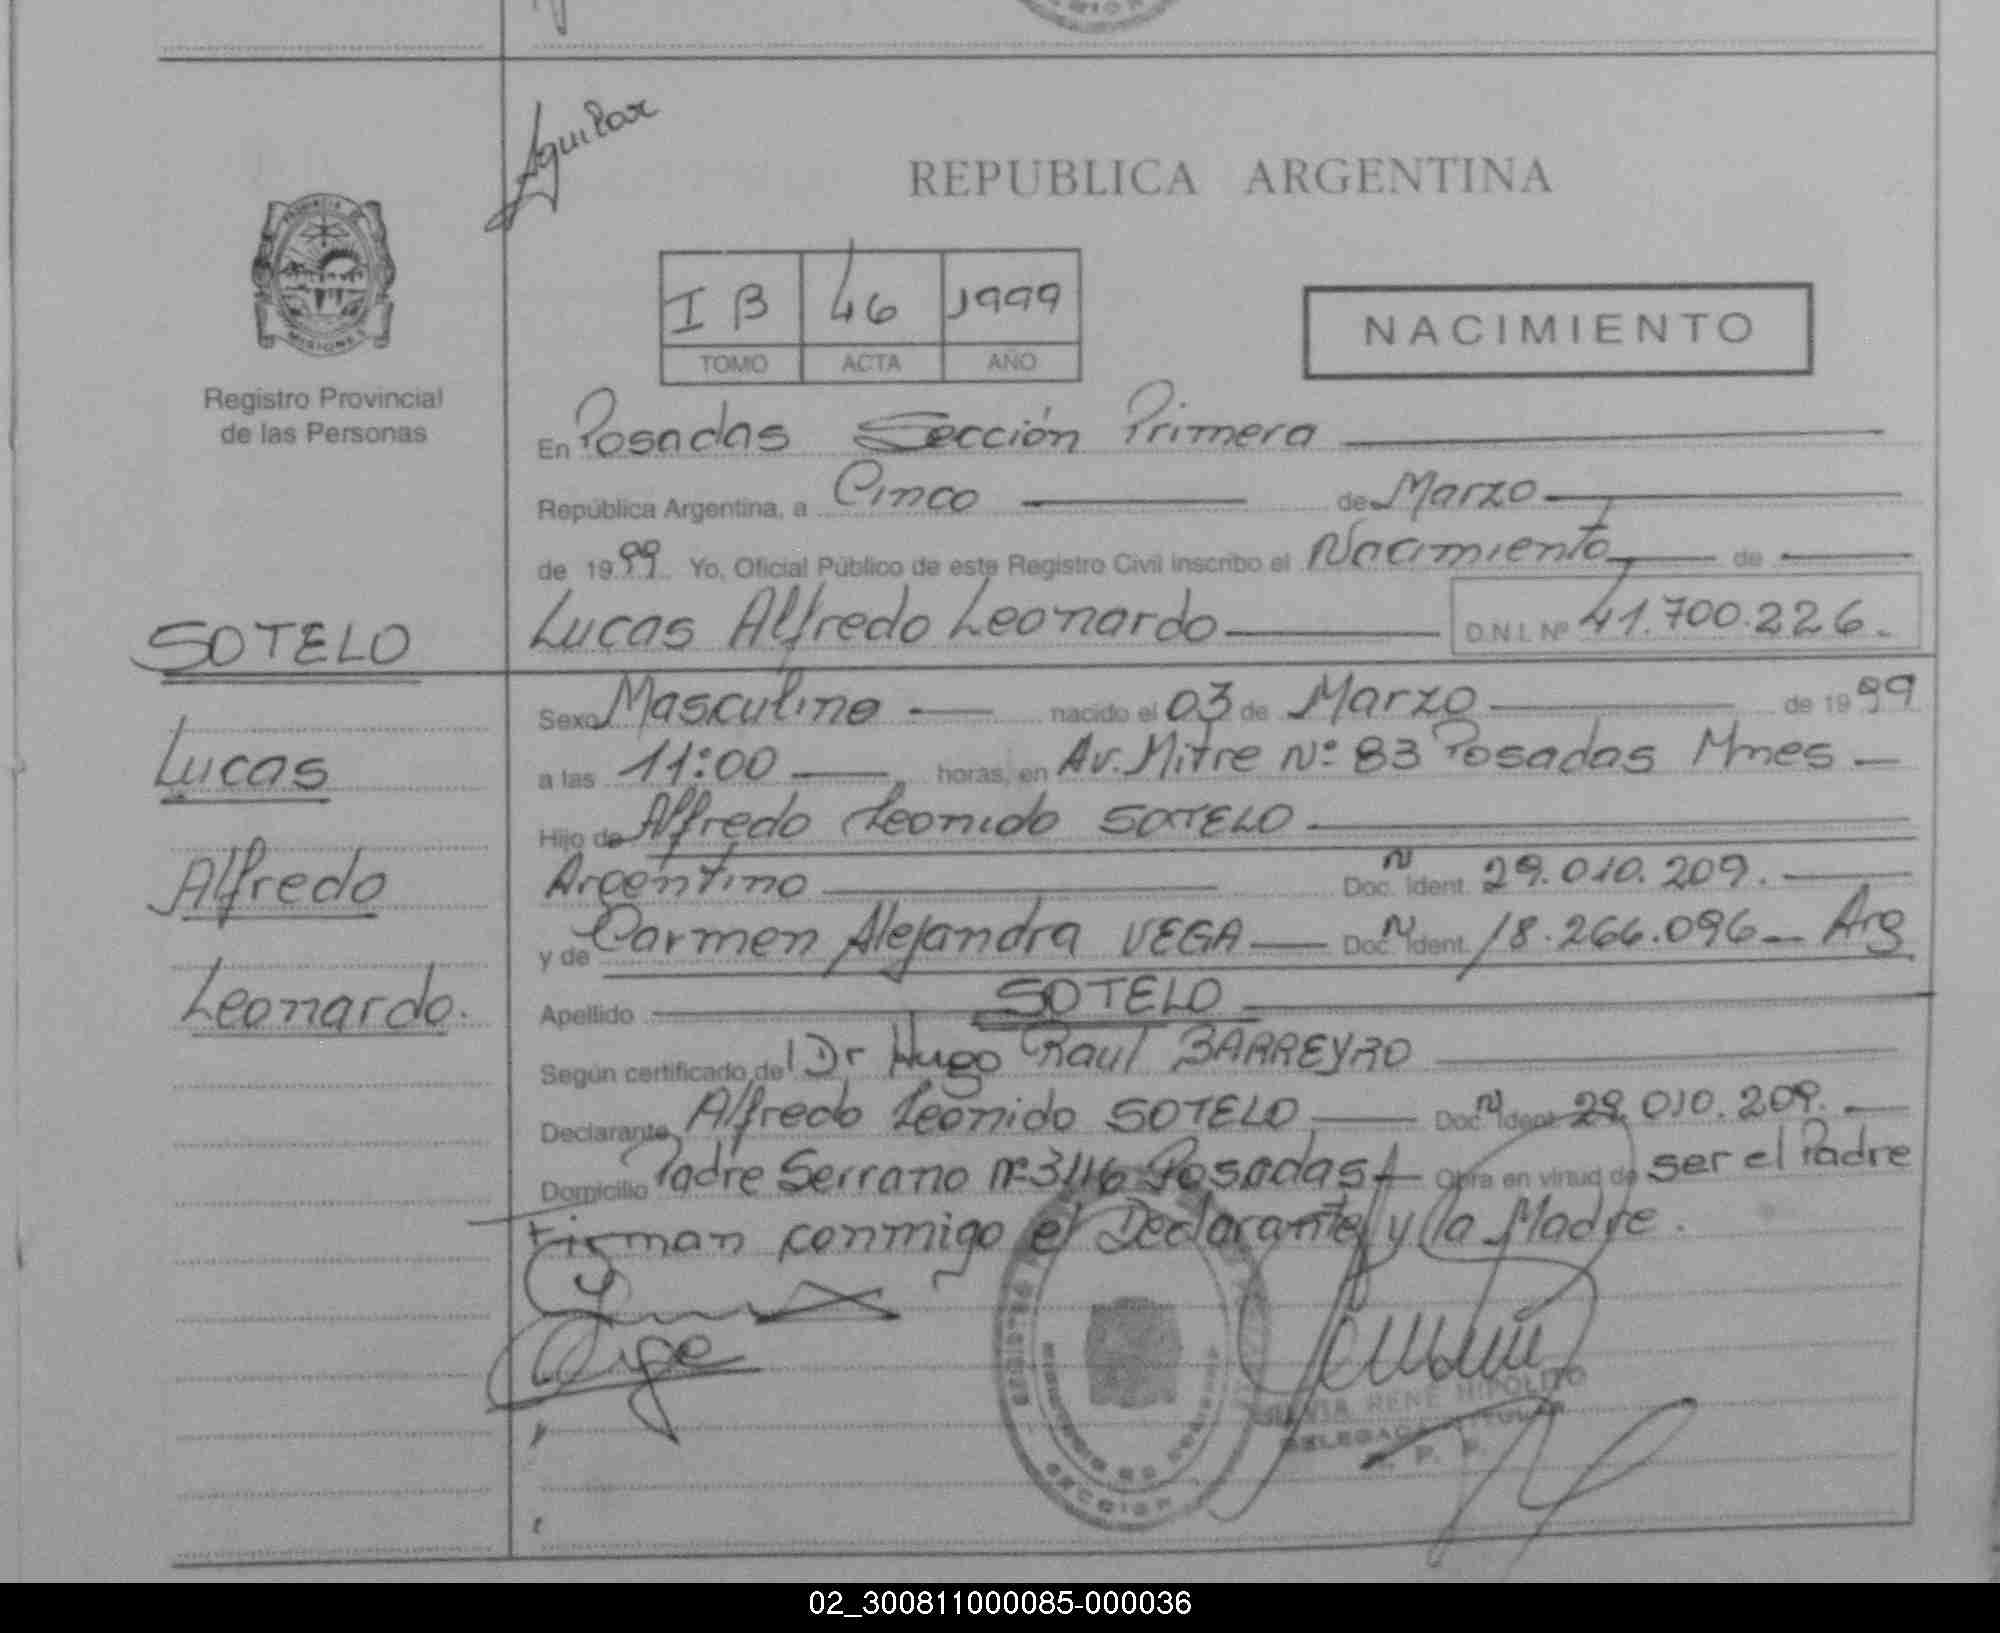 Aguilar
REPUBLICA ARGENTINA
I B 46 1999
TOMO ACTA AÑO
NACIMIENTO
PROVINCIA DE MISIONES
Registro Provincial
de las Personas
En Posadas Sección Primera
República Argentina, a Cinco de Marzo
de 1999 Yo, Oficial Público de este Registro Civil inscribo el Nacimiento de
Lucas Alfredo Leonardo D.N.I. Nº 41.700.226.
SOTELO
Lucas
Alfredo
Leonardo.
Sexo Masculino nacido el 03 de Marzo de 1999
a las 11:00 horas, en Av. Mitre Nº 83 Posadas Mnes
Hijo de Alfredo Leonido SOTELO
Argentino Doc. Ident. 29.010.209.
y de Carmen Alejandra VEGA Doc. Ident. 18.266.096 Arg
Apellido SOTELO
Según certificado de Dr Hugo Raul BARREYRO
Declarante Alfredo Leonido SOTELO Doc. Ident. 29.010.209.
Domicilio Padre Serrano Nº 3116 Posadas Obra en virtud de ser el Padre
Firman conmigo el Declarante y la Madre.
RENE HIPOLITO
DELEGADA TITULAR
R. P. P.
SECCION
02_300811000085-000036